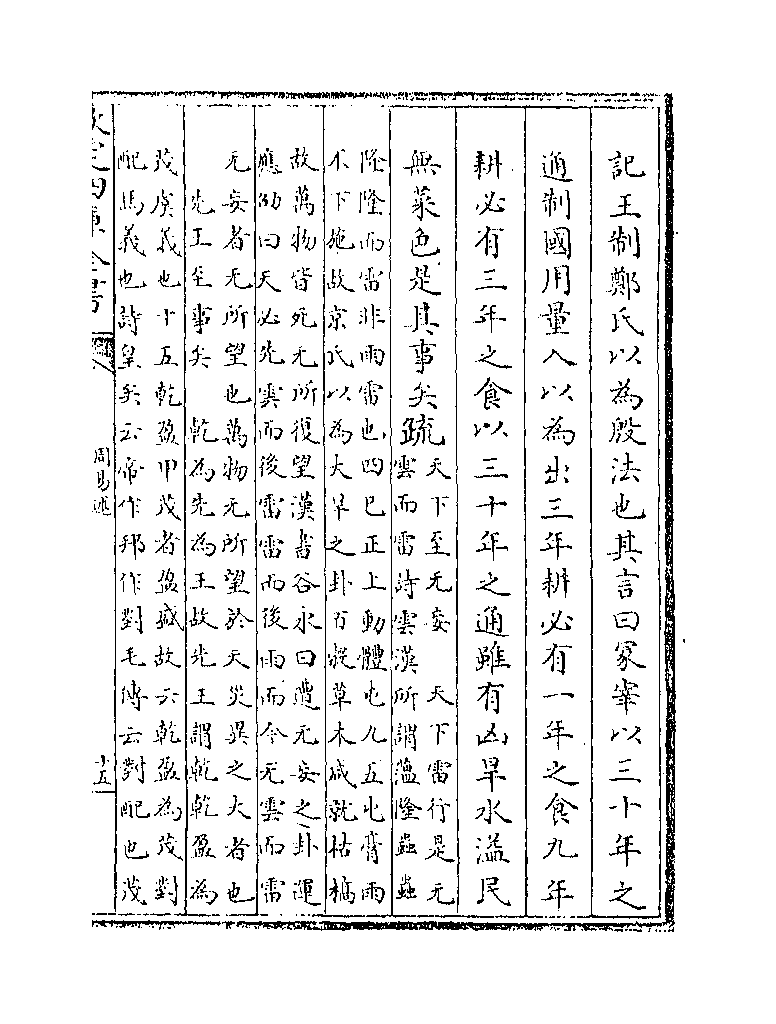 記王制鄭氏以為殷法也其言曰冢宰以三十年之
通制國用量入以為出三年耕必有一年之食九年
耕必有三年之食以三十年之通雖有凶旱水溢民
無菜色是其事矣疏
天下至无妄　天下雷行是无
雲而雷詩雲漢所謂蘊隆蟲蟲
隆隆而雷非雨雷也四巳正上動體屯九五屯膏雨
不下施故京氏以為大旱之卦百穀草木咸就枯槁
故萬物皆死无所復望漢書谷永曰遭无妄之卦運
應劭曰天必先雲而後雷雷而後雨而今无雲而雷
无妄者无所望也萬物无所望於天災異之大者也
先王至事矣　乾為先為王故先王謂乾乾盈為
茂虞義也十五乾盈甲茂者盈盛故云乾盈為茂對
配馬義也詩皇矣云帝作邦作對毛傳云對配也茂
欽定四庫全書
周易述
十五